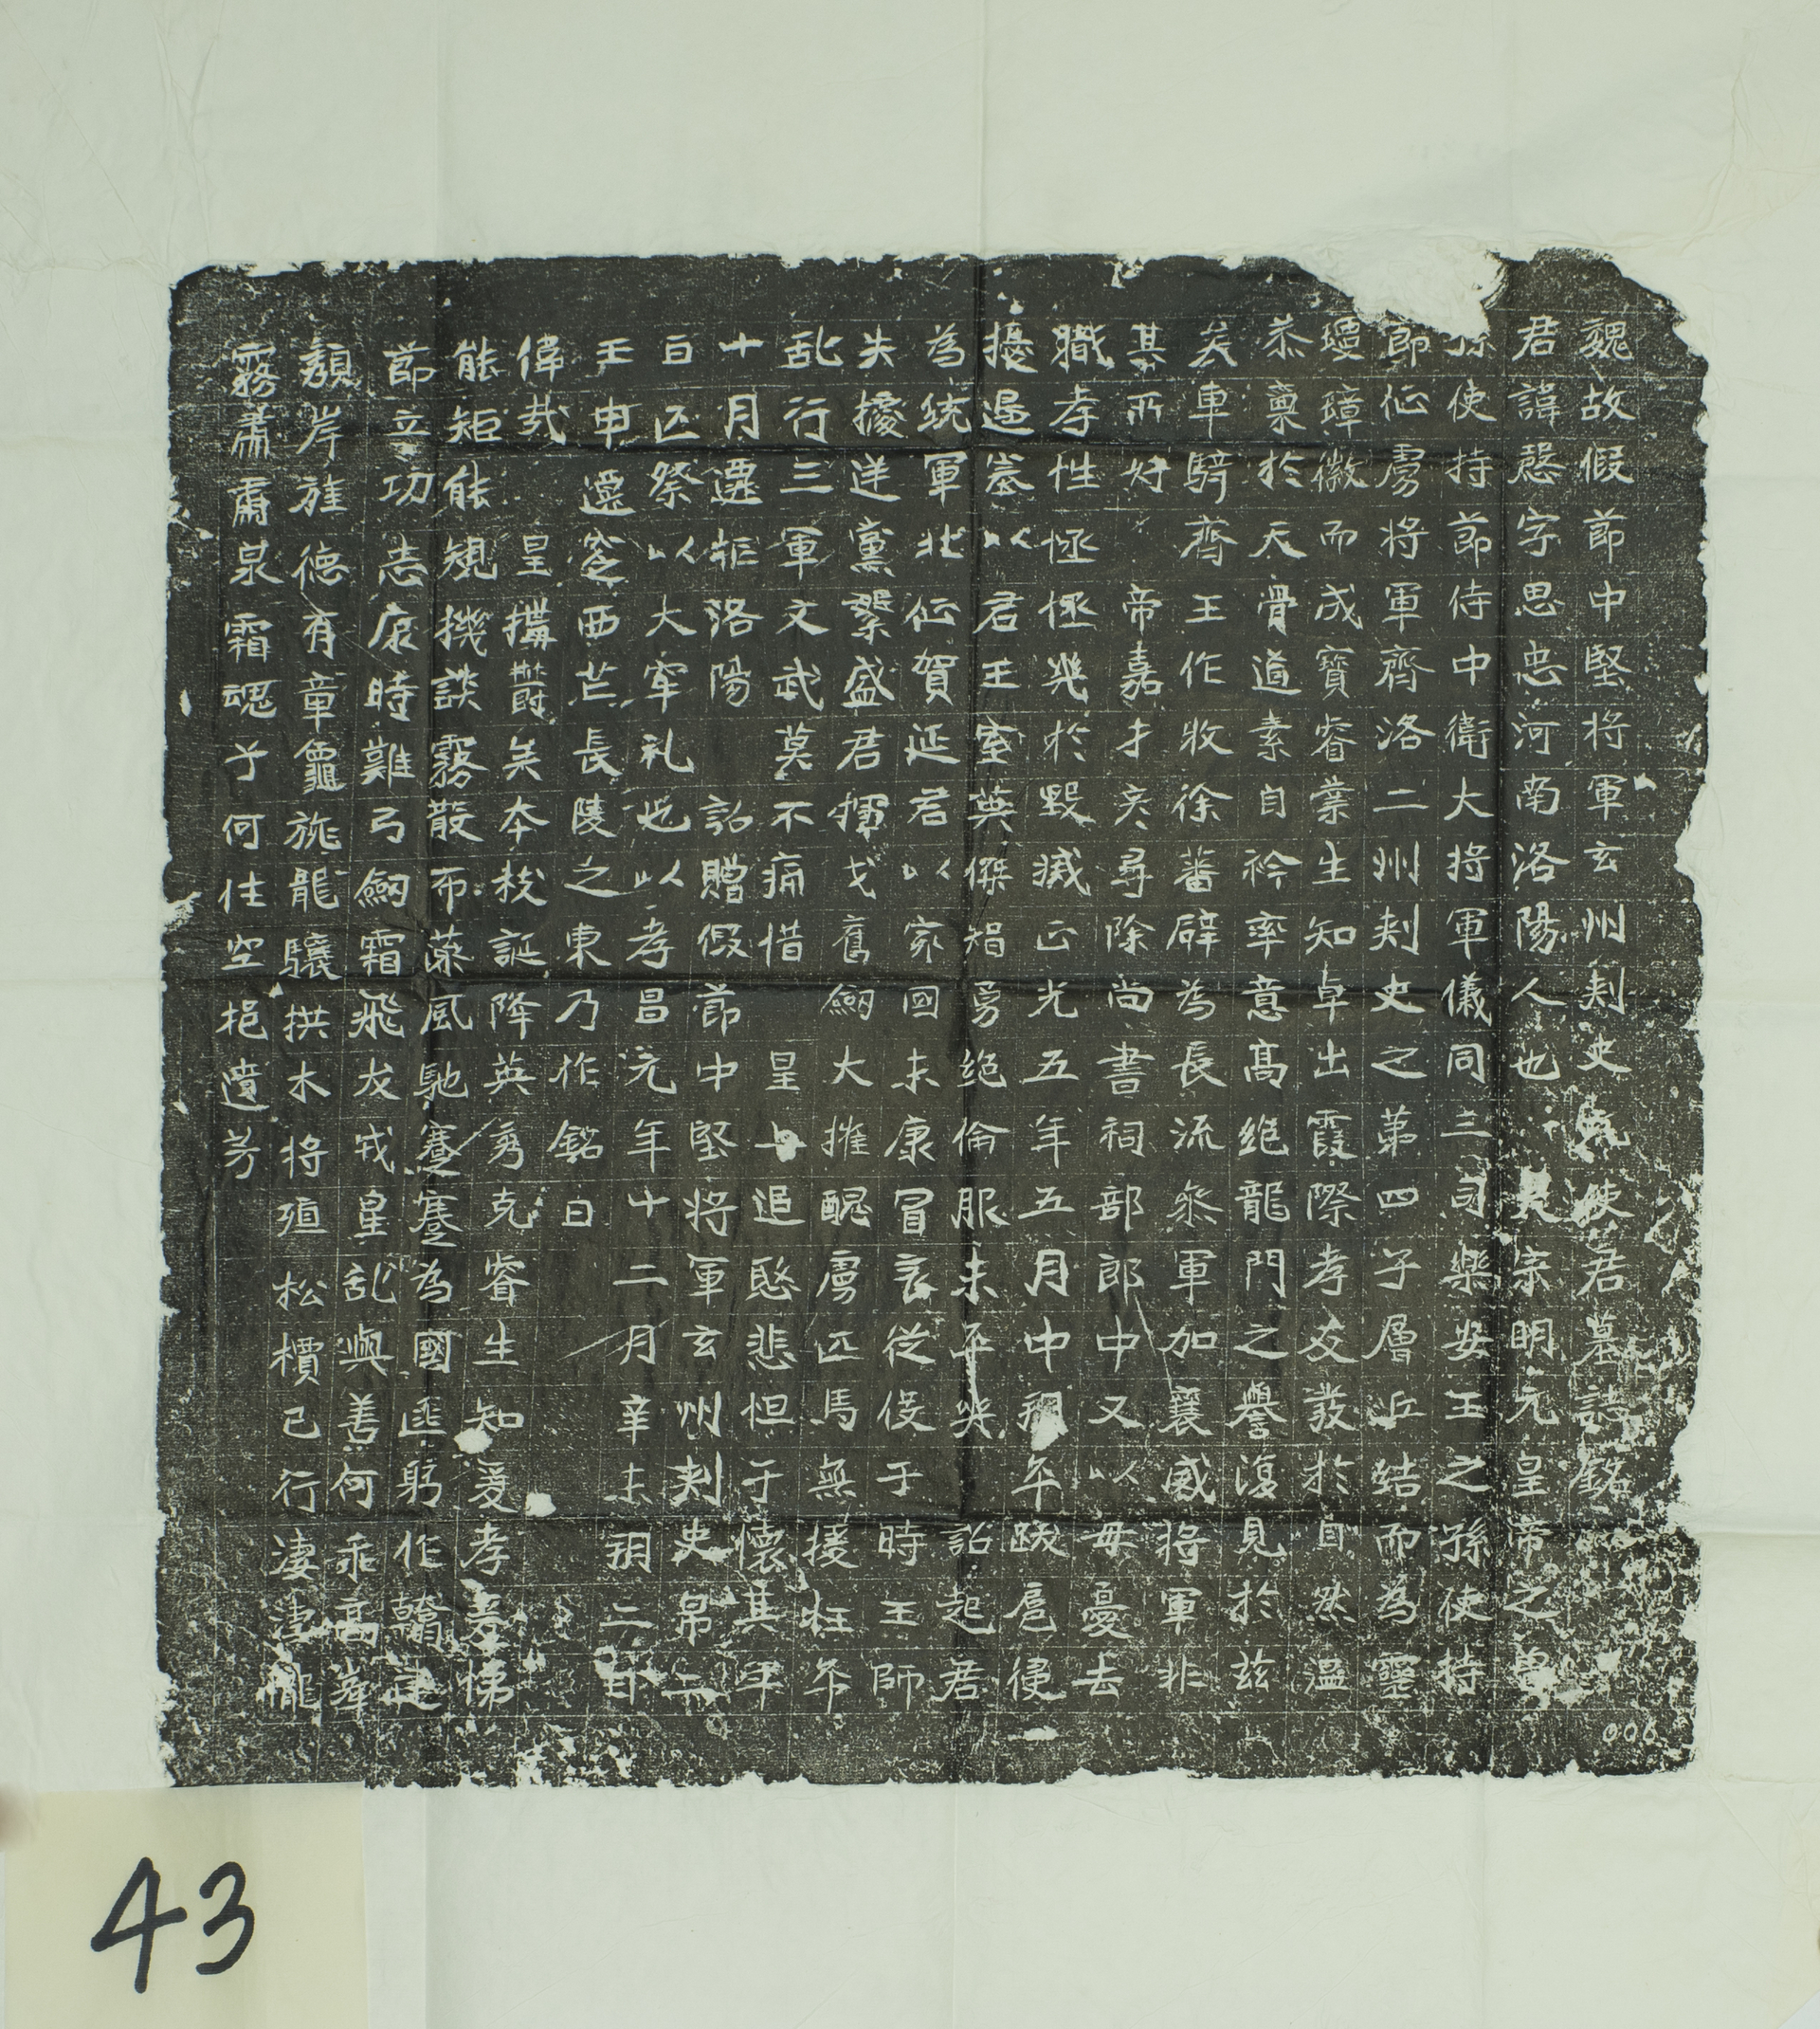 魏故假節中堅將軍玄州刾史元使君墓誌銘
君諱慇字思忠河南洛陽人也太宗明元皇帝之曾
孫使持節侍中衛大將軍儀同三司樂安王之孫使持
節征虜將軍齊洛二州刾史之第四子層丘結而為靈
瓊璋徽而成寶睿業生知卓出霞際孝友發於自然溫
恭稟於天骨道素自衿率意高絕龍門之譽復見於茲
矣車騎齊王作牧徐蕃辟為長流叅軍加襄威將軍非
其所好 帝嘉才彥尋除尚書祠部郎中又以毋憂去
職孝性恆極幾於毀烕正光五年五月中朔卒跋扈侵
擾邊塞以君王室英傑智勇絕倫服未卒哭 詔起君
為統軍北征賀延君以家國未康冒哀從役于時王師
失據送黨繁盛君揮戈奮劒大摧醜虜匹馬無援枉卒
亂行三軍文武莫不痛惜 皇上追愍悲怛于懷其年
十月還拒洛陽 詔贈假節中堅將軍玄州刾史帛二
百匹祭以大牢礼也以孝昌元年十二月辛未朔二日
壬申遷窆西芒長陵之東乃作銘曰
偉哉 皇搆欝矣本枝誕降英秀克睿生知爰孝爰悌
能矩能規機談霧散布藻風馳蹇蹇為國匪躬作翰建
節立功 志康時難弓劒霜飛犮戎皇亂與善何乖高峯
頹岸旌德有章龜旐龍驤拱木將殖松檟已行淒淒隴
霧肅肅泉霜魂兮何住空挹遺芳
006
43